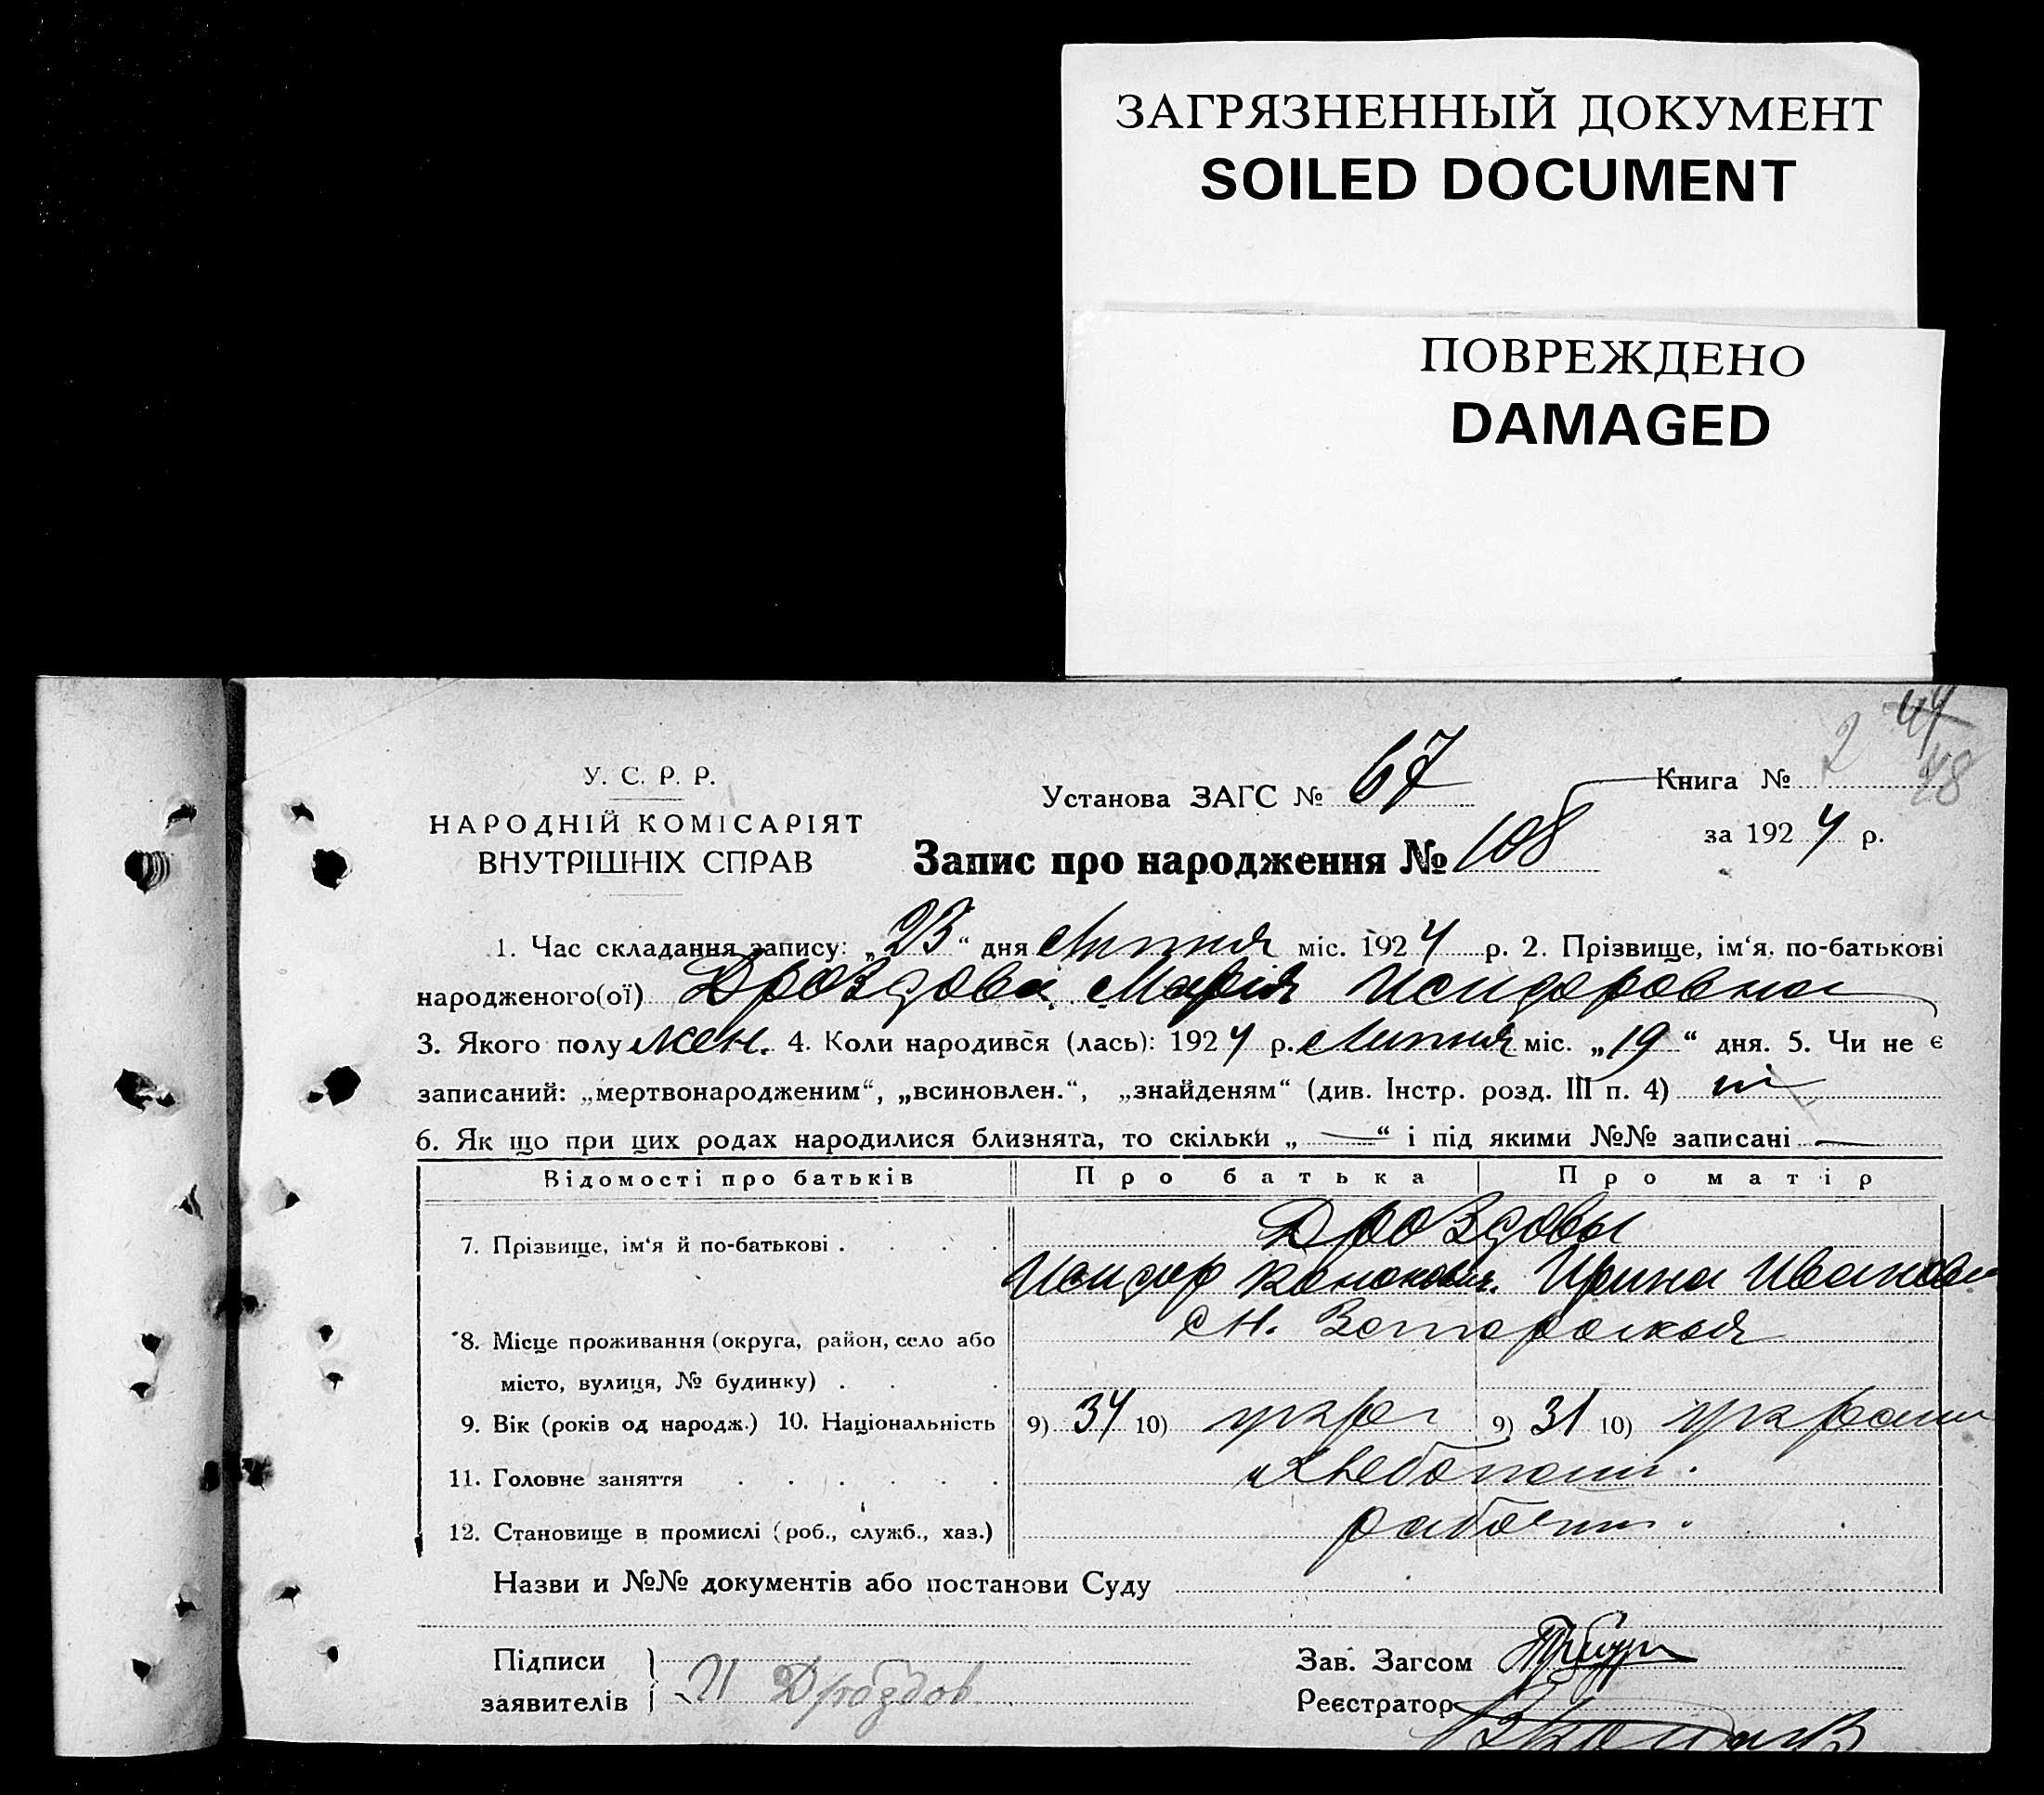 ЗАГРЯЗНЕННЫЙ ДОКУМЕНТ
SOILED DOCUMENT
ПОВРЕЖДЕНО
DAMAGED
44
2 48
У. С. Р. Р.
НАРОДНІЙ КОМІСАРІЯТ
ВНУТРІШНІХ СПРАВ
Установа ЗАГС № 67
Книга №
за 1924 р.
Запис про народження № 108
1. Час складання запису: „23“ дня Липня міс. 1924 р. 2. Прізвище, ім‘я, по-батькові
народженого(ої) Дроздова Марія Исидоровна
3. Якого полу жен. 4. Коли народився (лась): 1924 р. Липня міс. „19“ дня. 5. Чи не є
записаний: „мертвонародженим“, „всиновлен.“, „знайденям“ (див. Інстр. розд. III п. 4) ні
6. Як що при цих родах народилися близнята, то скільки „—“ і під якими №№ записані —
Відомості про батьків Про батька Про матір
7. Прізвище, ім‘я й по-батькові . . . . Дроздовы
Исидор Кононович. Ирина Иванова
8. Місце проживання (округа, район, село або ст.
місто, вулиця, № будинку) . . .
9. Вік (років од народж.) 10. Національність 9) 34 10) укра 9) 31 10) украин
11. Головне заняття . . . . . . Хлебопаш.
12. Становище в промислі (роб., служб., хаз.)
Назви и №№ документів або постанови Суду
Підписи
заявителів И Дроздов
Зав. Загсом
Реєстратор